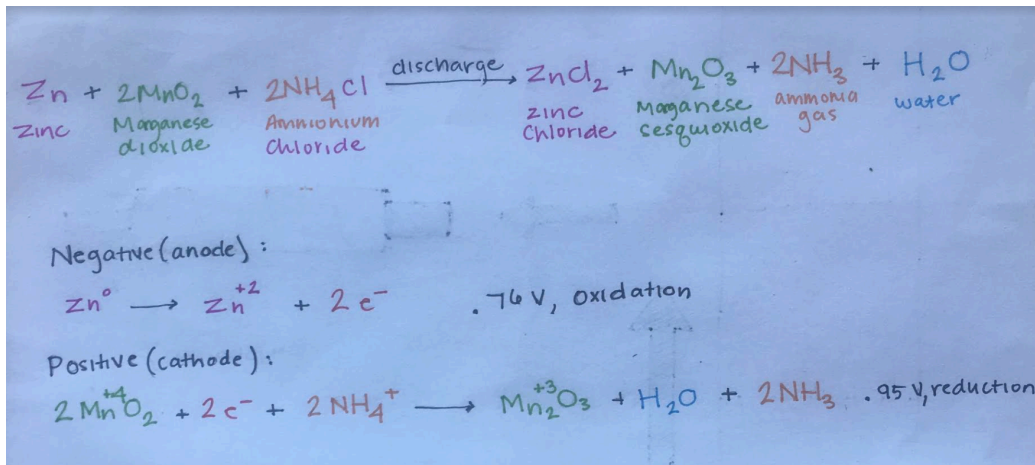 Zn + 2MnO₂ + 2NH₄Cl discharge → ZnCl₂ + Mn₂O₃ + 2NH₃ + H₂O
zinc Manganese dioxide Ammionium chloride zinc Chloride Manganese sesquioxide ammonia gas water
Negative (anode) :
Zn⁰ → Zn⁺² + 2 e⁻ .76 V, oxidation
Positive (cathode) :
2 Mn⁺⁴O₂ + 2 e⁻ + 2 NH₄⁺ → Mn₂⁺³O₃ + H₂O + 2NH₃ .95 V, reduction